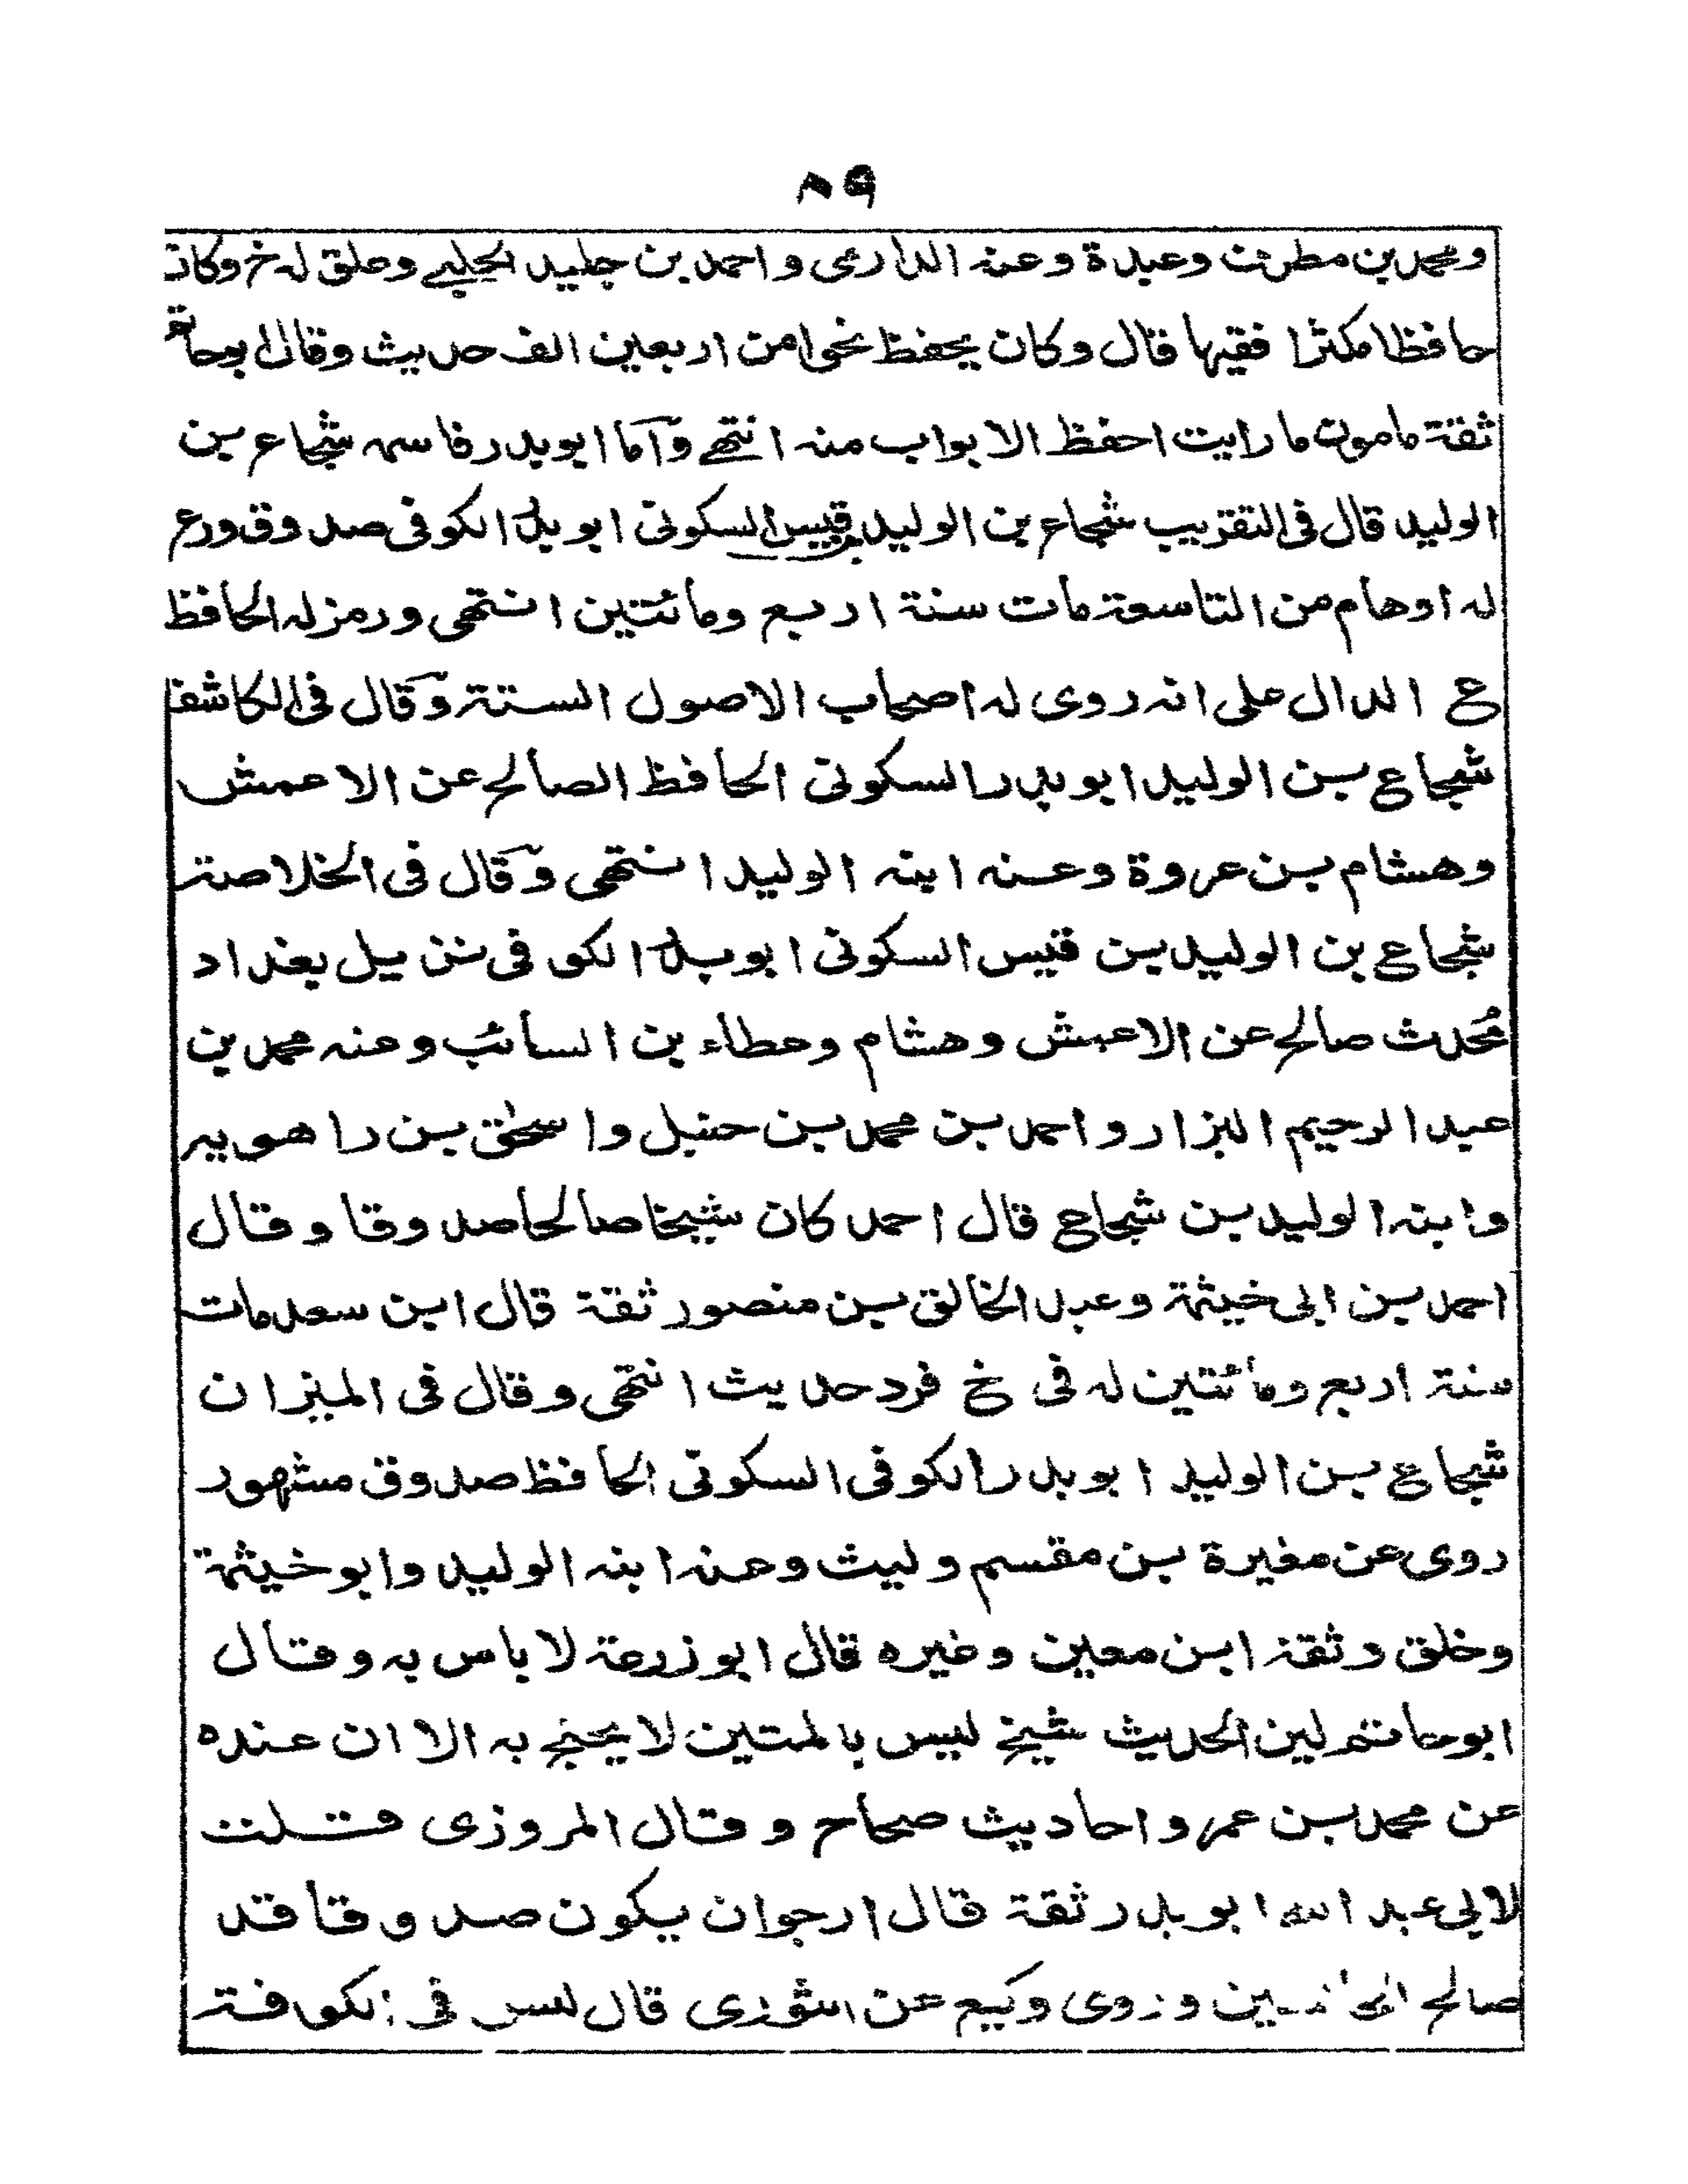 ٨٩
ومحمد بن مطرف وعبدة وعنه الدارمى واحمد بن خليد الحلبے وعلق له خ وكان
حافظا مكثرا فقيها قال وكان يحفظ نحوا من اربعين الف حديث وقال ابوحاتم
ثقة مامون ما رايت احفظ الابواب منه انتهے وَاما ابوبدر فاسمه شجاع بن
الوليد قال فى التقريب شجاع بن الوليد بن قيس السكونى ابو بدر الكوفى صدوق ورع
له اوهام من التاسعة مات سنة اربع ومائتين انتهى ورمز له الحافظ
ع الدال على انه روى له اصحاب الاصول الستة وَقال فى الكاشف
شجاع بن الوليد ابو بدر السكونى الحافظ الصالح عن الاعمش
وهشام بن عروة وعنه ابنه الوليد انتهى وَقال فى الخلاصة
شجاع بن الوليد بن قيس السكونى ابو بدر الكوفى نزيل بغداد
مُحدث صالح عن الاعمش وهشام وعطاء بن السائب وعنه محمد بن
عبد الرحيم البزار واحمد بن محمد بن حنبل واسحٰق بن راهويه
وابنه الوليد بن شجاع قال احمد كان شيخا صالحا صدوقا وقال
احمد بن ابى خيثمة وعبد الخالق بن منصور ثقة قال ابن سعد مات
سنة اربع ومائتين له فى خ فرد حديث انتهى وقال فى الميزان
شجاع بن الوليد ابو بدر الكوفى السكونى الحافظ صدوق مشهور
روى عن مغيرة بن مقسم وليث وعنه ابنه الوليد وابو خيثمة
وخلق وثقه ابن معين وغيره قال ابو زرعة لا باس به وقال
ابوحاتم لين الحديث شيخ ليس بالمتين لا يحتج به الا ان عنده
عن محمد بن عمرو احاديث صحاح وقال المروزى قلت
لابى عبد الله ابو بدر ثقة قال ارجو ان يكون صدوقا قد
صالح وروى وكيع عن الثورى قال ليس فى الكوفة